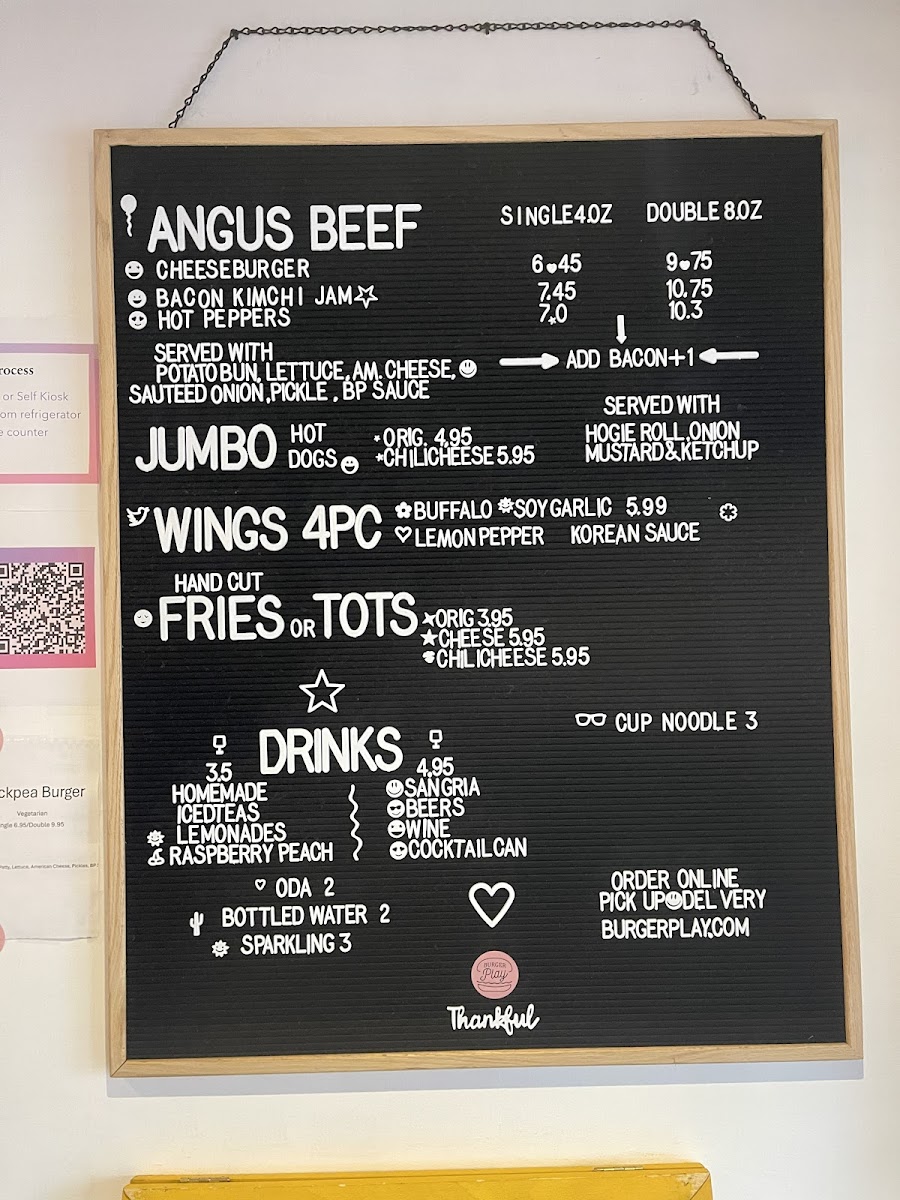 ANGUS BEEF SINGLE 4.OZ DOUBLE 8.OZ
CHEESEBURGER 6.45 9.75
BACON KIMCHI JAM 7.45 10.75
HOT PEPPERS 7.0 10.3
SERVED WITH
POTATO BUN, LETTUCE, AM. CHEESE,
SAUTEED ONION, PICKLE, BP SAUCE
ADD BACON+1
SERVED WITH
HOGIE ROLL, ONION
MUSTARD & KETCHUP
JUMBO HOT DOGS
ORIG. 4.95
CHILICHEESE 5.95
WINGS 4PC
BUFFALO SOY GARLIC 5.99
LEMON PEPPER KOREAN SAUCE
HAND CUT
FRIES OR TOTS
ORIG 3.95
CHEESE 5.95
CHILICHEESE 5.95
CUP NOODLE 3
DRINKS
3.5
HOMEMADE
ICEDTEAS
LEMONADES
RASPBERRY PEACH
4.95
SANGRIA
BEERS
WINE
COCKTAIL CAN
ODA 2
BOTTLED WATER 2
SPARKLING 3
ORDER ONLINE
PICK UP DEL VERY
BURGERPLAY.COM
BURGER
Play
Thankful
rocess
or Self Kiosk
om refrigerator
e counter
ckpea Burger
Vegetarian
ngle 6.95/Double 9.95
Patty, Lettuce, American Cheese, Pickles, BP